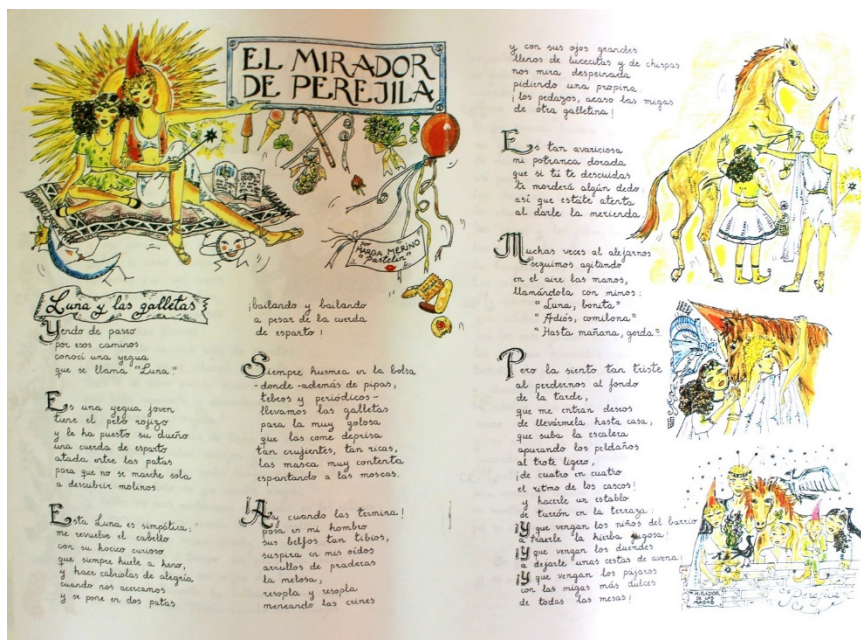 EL MIRADOR
DE PEREJILA
por
MARGA MERINO
"Pastelín"
Luna y las galletas
Yendo de paseo
por esos caminos
conocí una yegua
que se llama "Luna."
Es una yegua joven
tiene el pelo rojizo
y le ha puesto su dueño
una cuerda de esparto
atada entre las patas
para que no se marche sola
a descubrir molinos.
Esta Luna es simpática:
me revuelve el cabello
con su hocico curioso
que siempre huele a heno,
y hace cabriolas de alegría
cuando nos acercamos
y se pone en dos patas
¡bailando y bailando
a pesar de la cuerda
de esparto!
Siempre husmea en la bolsa
-donde -además de pipas,
tebeos y periódicos-
llevamos las galletas
para la muy golosa
que las come deprisa
tan crujientes, tan ricas,
las masca muy contenta
espantando a las moscas.
¡Ay cuando las termina!
posa en mi hombro
sus belfos tan tibios,
suspira en mis oídos
arrullos de praderas
la melosa,
resopla y resopla
meneando las crines
y con sus ojos grandes
llenos de lucecitas y de chispas
nos mira despeinada
pidiendo una propina:
¡los pedazos, acaso las migas
de otra galletina!
Es tan avariciosa
mi potranca dorada
que si tú te descuidas
te morderá algún dedo
así que estate atenta
al darle la merienda.
Muchas veces al alejarnos
seguimos agitando
en el aire las manos,
llamándola con mimos:
"Luna, bonita"
"Adiós, comilona"
"Hasta mañana, gorda".
Pero la siento tan triste
al perdernos al fondo
de la tarde,
que me entran deseos
de llevármela hasta casa,
que suba la escalera
apurando los peldaños
al trote ligero,
¡de cuatro en cuatro
el ritmo de los cascos!
y hacerle un establo
de turrón en la terraza:
¡Y que vengan los niños del barrio
a traerle la hierba jugosa!
¡Y que vengan los duendes
a dejarle unas cestas de avena;
¡Y que vengan los pájaros
con las migas más dulces
de todas las mesas!
MIRADOR
DE LAS
MAGAS
Perejila